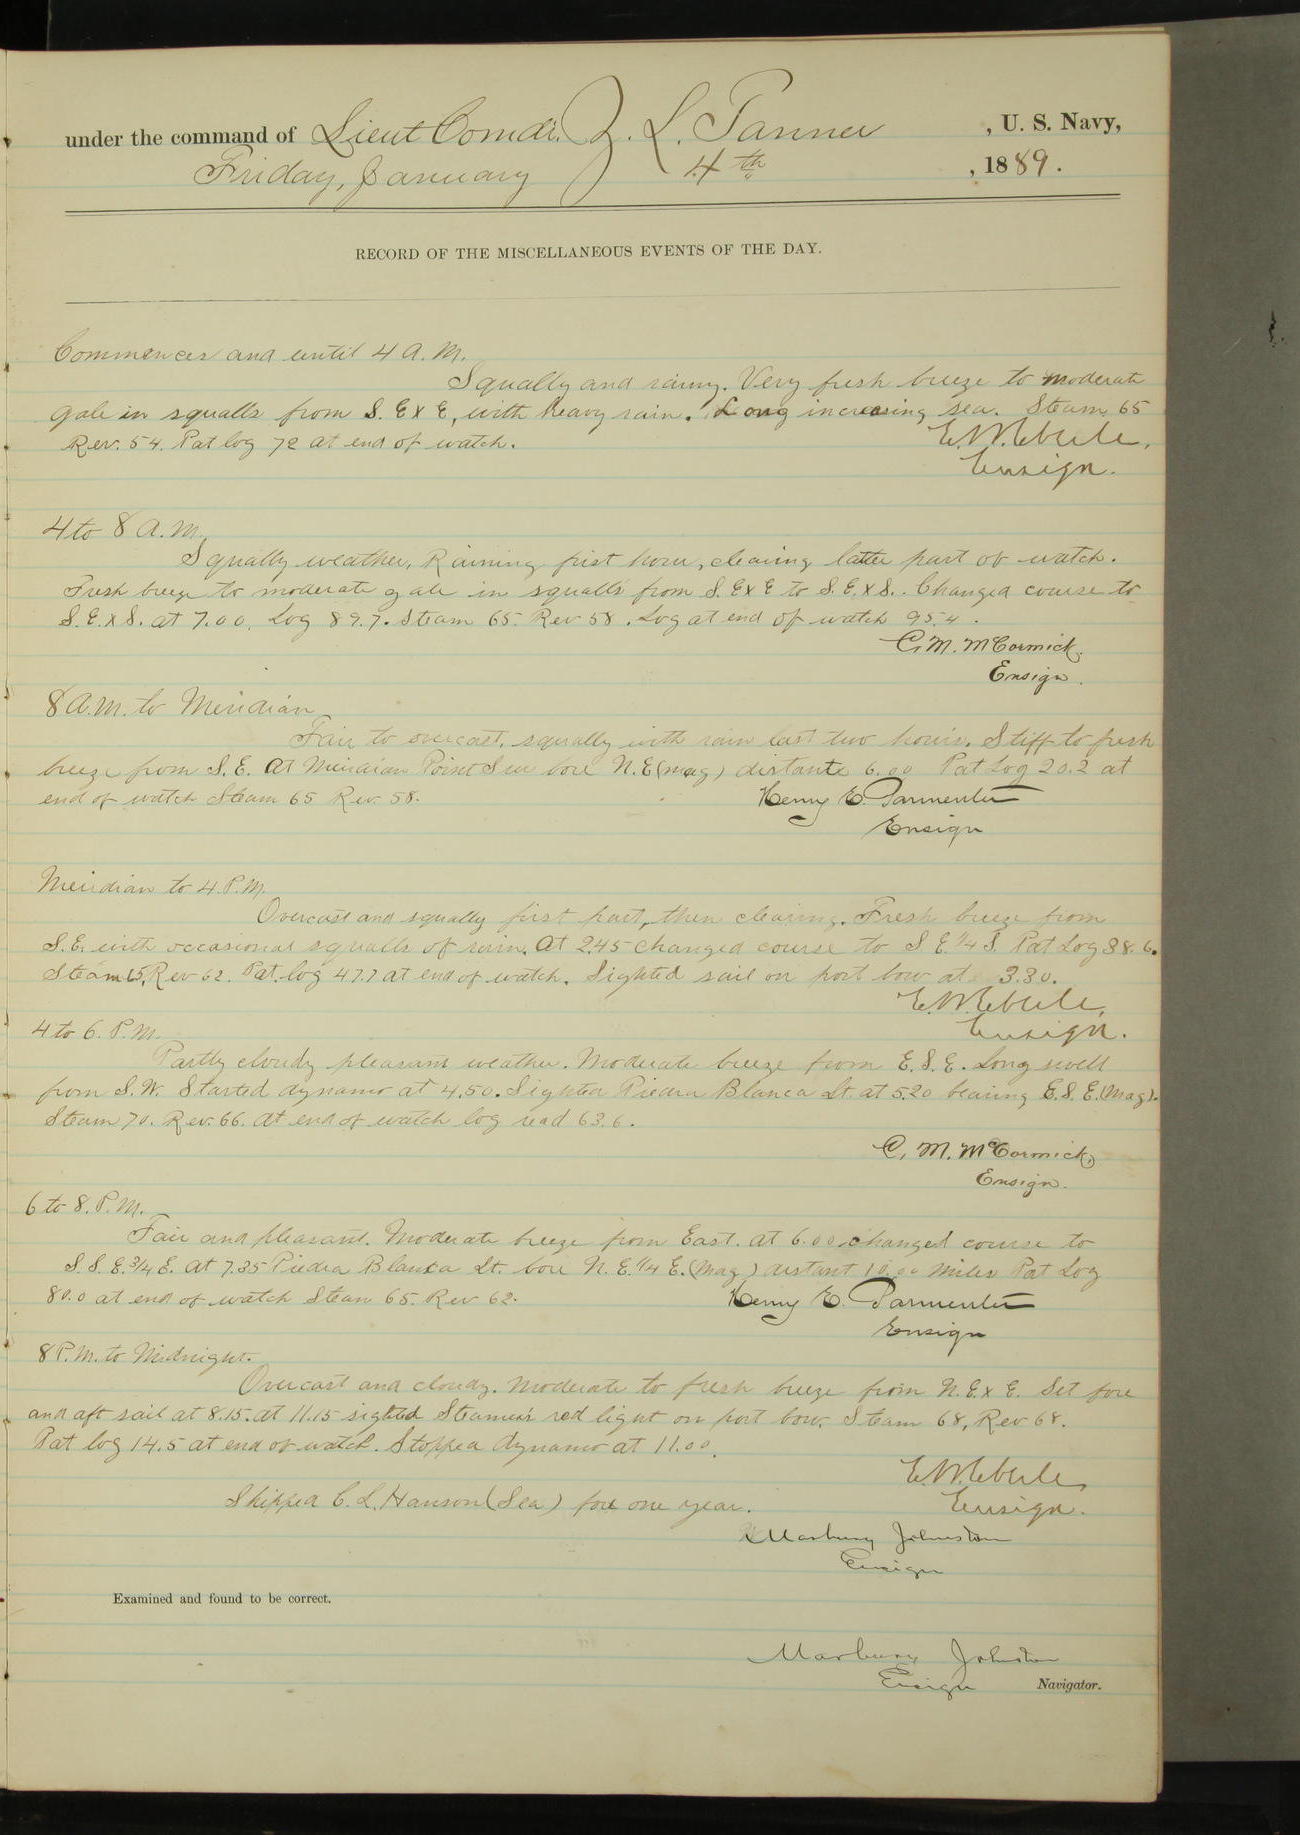 under the command of Lieut Comdr. Z. L. Tanner, U. S. Navy,
Friday, January 4th, 1889.
RECORD OF THE MISCELLANEOUS EVENTS OF THE DAY.
Commences and until 4 A.M.
Squally and rainy. Very fresh breeze to moderate
gale in squalls from S. E x E, with heavy rain. Long increasing sea. Steam 65
Rev. 54. Pat log 72 at end of watch.
E. W. Eberle,
Ensign.
4 to 8 A.M.
Squally weather, Raining first hour, clearing latter part of watch.
Fresh breeze to moderate gale in squalls from S. E x E to S. E. x S. Changed course to
S. E. x S. at 7.00. Log 89.7. Steam 65. Rev 58. Log at end of watch 95.4.
C. M. McCormick.
Ensign.
8 A.M. to Meridian
Fair to overcast, squally with rain last two hours. Stiff to fresh
breeze from S. E. At Meridian Point Sur bore N. E (mag) distante 6.00 Pat Log 20.2 at
end of watch Steam 65 Rev. 58.
Henry E. Parmenter
Ensign
Meridian to 4 P.M.
Overcast and squally first part, then clearing. Fresh breeze from
S. E. with occasional squalls of rain. At 2.45 changed course to S E. 1/4 S. Pat Log 38.6.
Steam 65, Rev 62. Pat. log 47.7 at end of watch. Sighted sail on port bow at 3.30.
E. W. Eberle,
Ensign.
4 to 6. P.M.
Partly cloudy pleasant weather. Moderate breeze from E. S. E. Long swell
from S. W. Started dynamo at 4.50. Sighted Piedra Blanca Lt. at 5.20 bearing E. S. E. (Mag).
Steam 70. Rev. 66. At end of watch log read 63.6.
C. M. McCormick,
Ensign.
6 to 8. P.M.
Fair and pleasant. Moderate breeze from East. At 6.00 changed course to
S. S. E. 3/4 E. At 7.35 Piedra Blanca Lt. bore N. E. 1/4 E. (Mag) distant 10.00 miles Pat Log
80.0 at end of watch Steam 65. Rev 62.
Henry E. Parmenter
Ensign
8 P.M. to Midnight.
Overcast and cloudy. Moderate to fresh breeze from N. E. x E. Set fore
and aft sail at 8.15. At 11.15 sighted Steamer's red light on port bow. Steam 68, Rev 68.
Pat log 14.5 at end of watch. Stopped dynamo at 11.00.
E. W. Eberle,
Ensign.
Shipped C. L. Hanson (Sea) for one year.
Marbury Johnston
Ensign
Examined and found to be correct.
Marbury Johnston
Ensign Navigator.